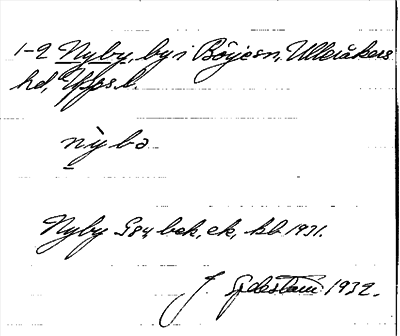 1-2 Nyby, by i Börjesn, Ulleråkers
hd, Upps.l.
nỳbə
Nyby G84 bek, ek, kb 1931.
J. 1932.